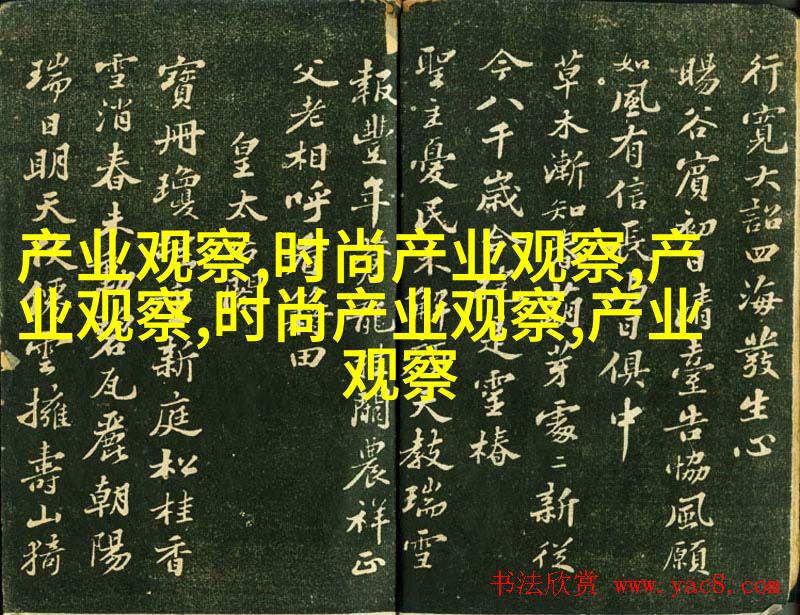 产业观察,时尚产业观察,产
业观察,时尚产业观察,产业
观察
行寬大詔四海發生心
暘谷賓初日清臺告協風願
如風有信長日俱中
草木漸知春萌芽處〻新從
今八千歲是靈椿
聖主憂民不天教瑞雪
報豐年龍闕農祥正
父老相呼田
皇太后閣
寶冊瓊新庭松桂香
雪消春未瓦麗朝陽
瑞日明天雲擁壽山猗
书法欣赏 www.yac8.com